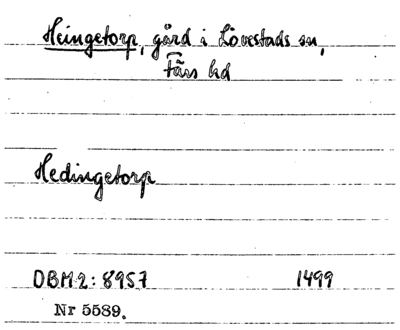 Heingetorp, gård i Lövestads sn,
Färs hd
Hedingetorp
DBM 2: 8957 1499
Nr 5589.